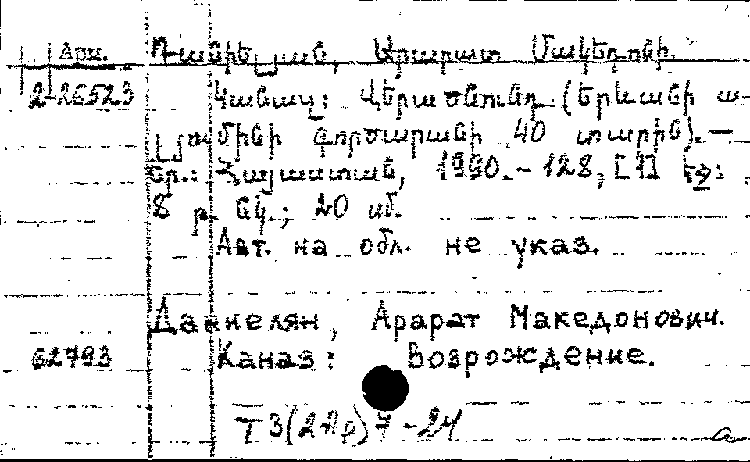 Арм. Դանիելյան, Արարատ Մակեդոնի.
2-26523 Կանազ: Վերածնունդ (Երևանի ա-
լյումինի գործարանի 40 տարին). —
Եր.: Հայաստան, 1990. - 128, [1] էջ:
8 թ. նկ.; 20 սմ.
Авт. на обл. не указ.
Даниелян, Арарат Македонович.
62793 Каназ: Возрождение.
Т3(2Ар)7-24